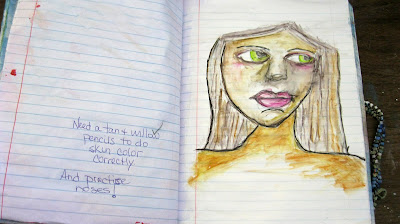 Need a tan & willow
pencils to do
skin color
correctly
And practise
noses!